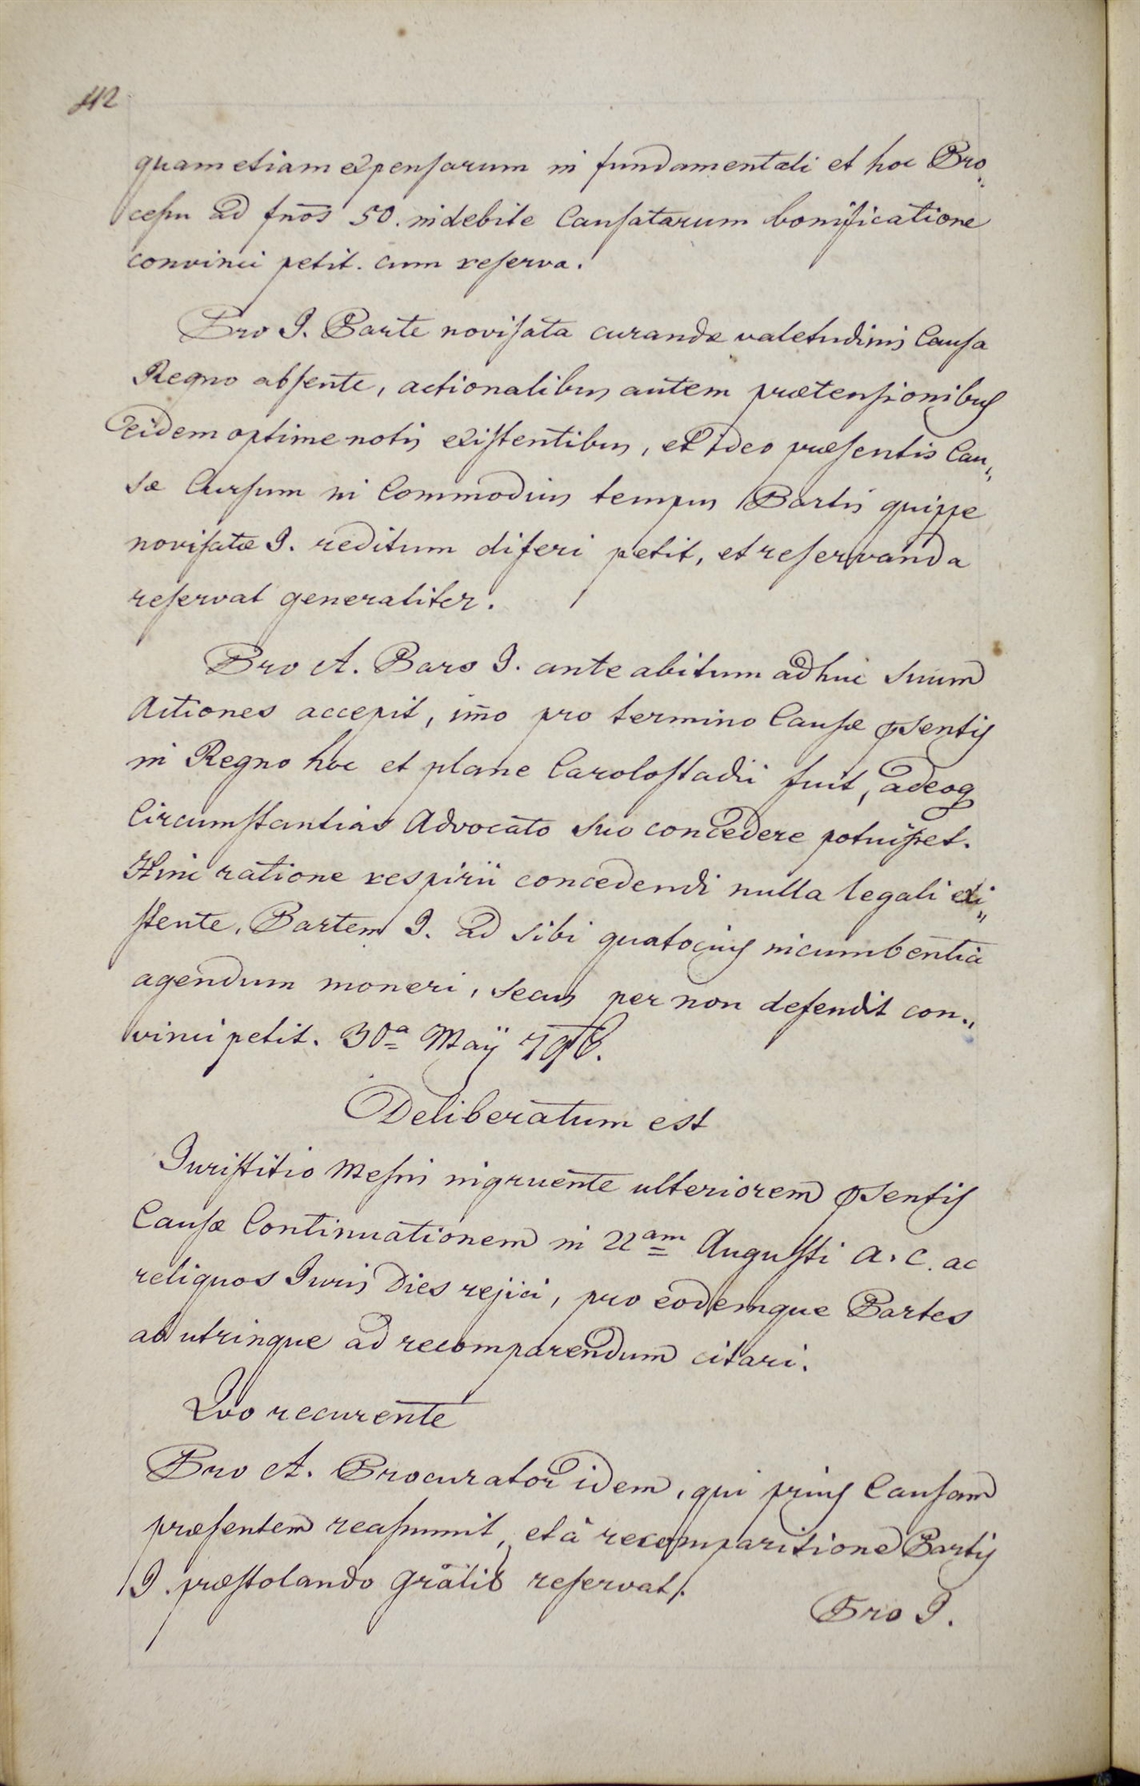 412
quam etiam expensarum in fundamentali et hoc Pro„
cessu ad fnōs 50. indebite Causatarum bonificatione
convinci petit. cum reserva.
Pro I. Parte novisata curandæ valetudinis Causa
Regno absente, actionalibus autem prætensionibus
eidem optime notis existentibus, et ideo præsentis Cau„
sæ Cursum in Commodius tempus Partis quippe
novisatæ I. reditum diferi petit, et reservanda
reservat generaliter.
Pro A. Baro I. ante abitum adhuc suum
Actiones accepit, im̄o pro termino Causæ psentis
in Regno hoc et plane Carolostadii fuit, adeoq
Circumstantias Advocato suo concedere potuisset.
Hinc ratione respirii concedendi nulla legali exi„
stente, Partem I. ad sibi quatocius incumbentia
agendum moneri, secus per non defendit con„
vinci petit. 30a Maÿ 796.
Deliberatum est
Juristitio Messis ingruente ulteriorem psentis
Causæ Continuationem in 22am Augusti a. c. ac
reliquos Juris Dies rejici, pro eodemque Partes
ab utrinque ad recomparendum citari.
Quo recurente
Pro A. Procurator idem, qui prius Causam
præsentem reassumit, et à recomparitione Partis
I. præstolando Grālis reservat.
Pro I.